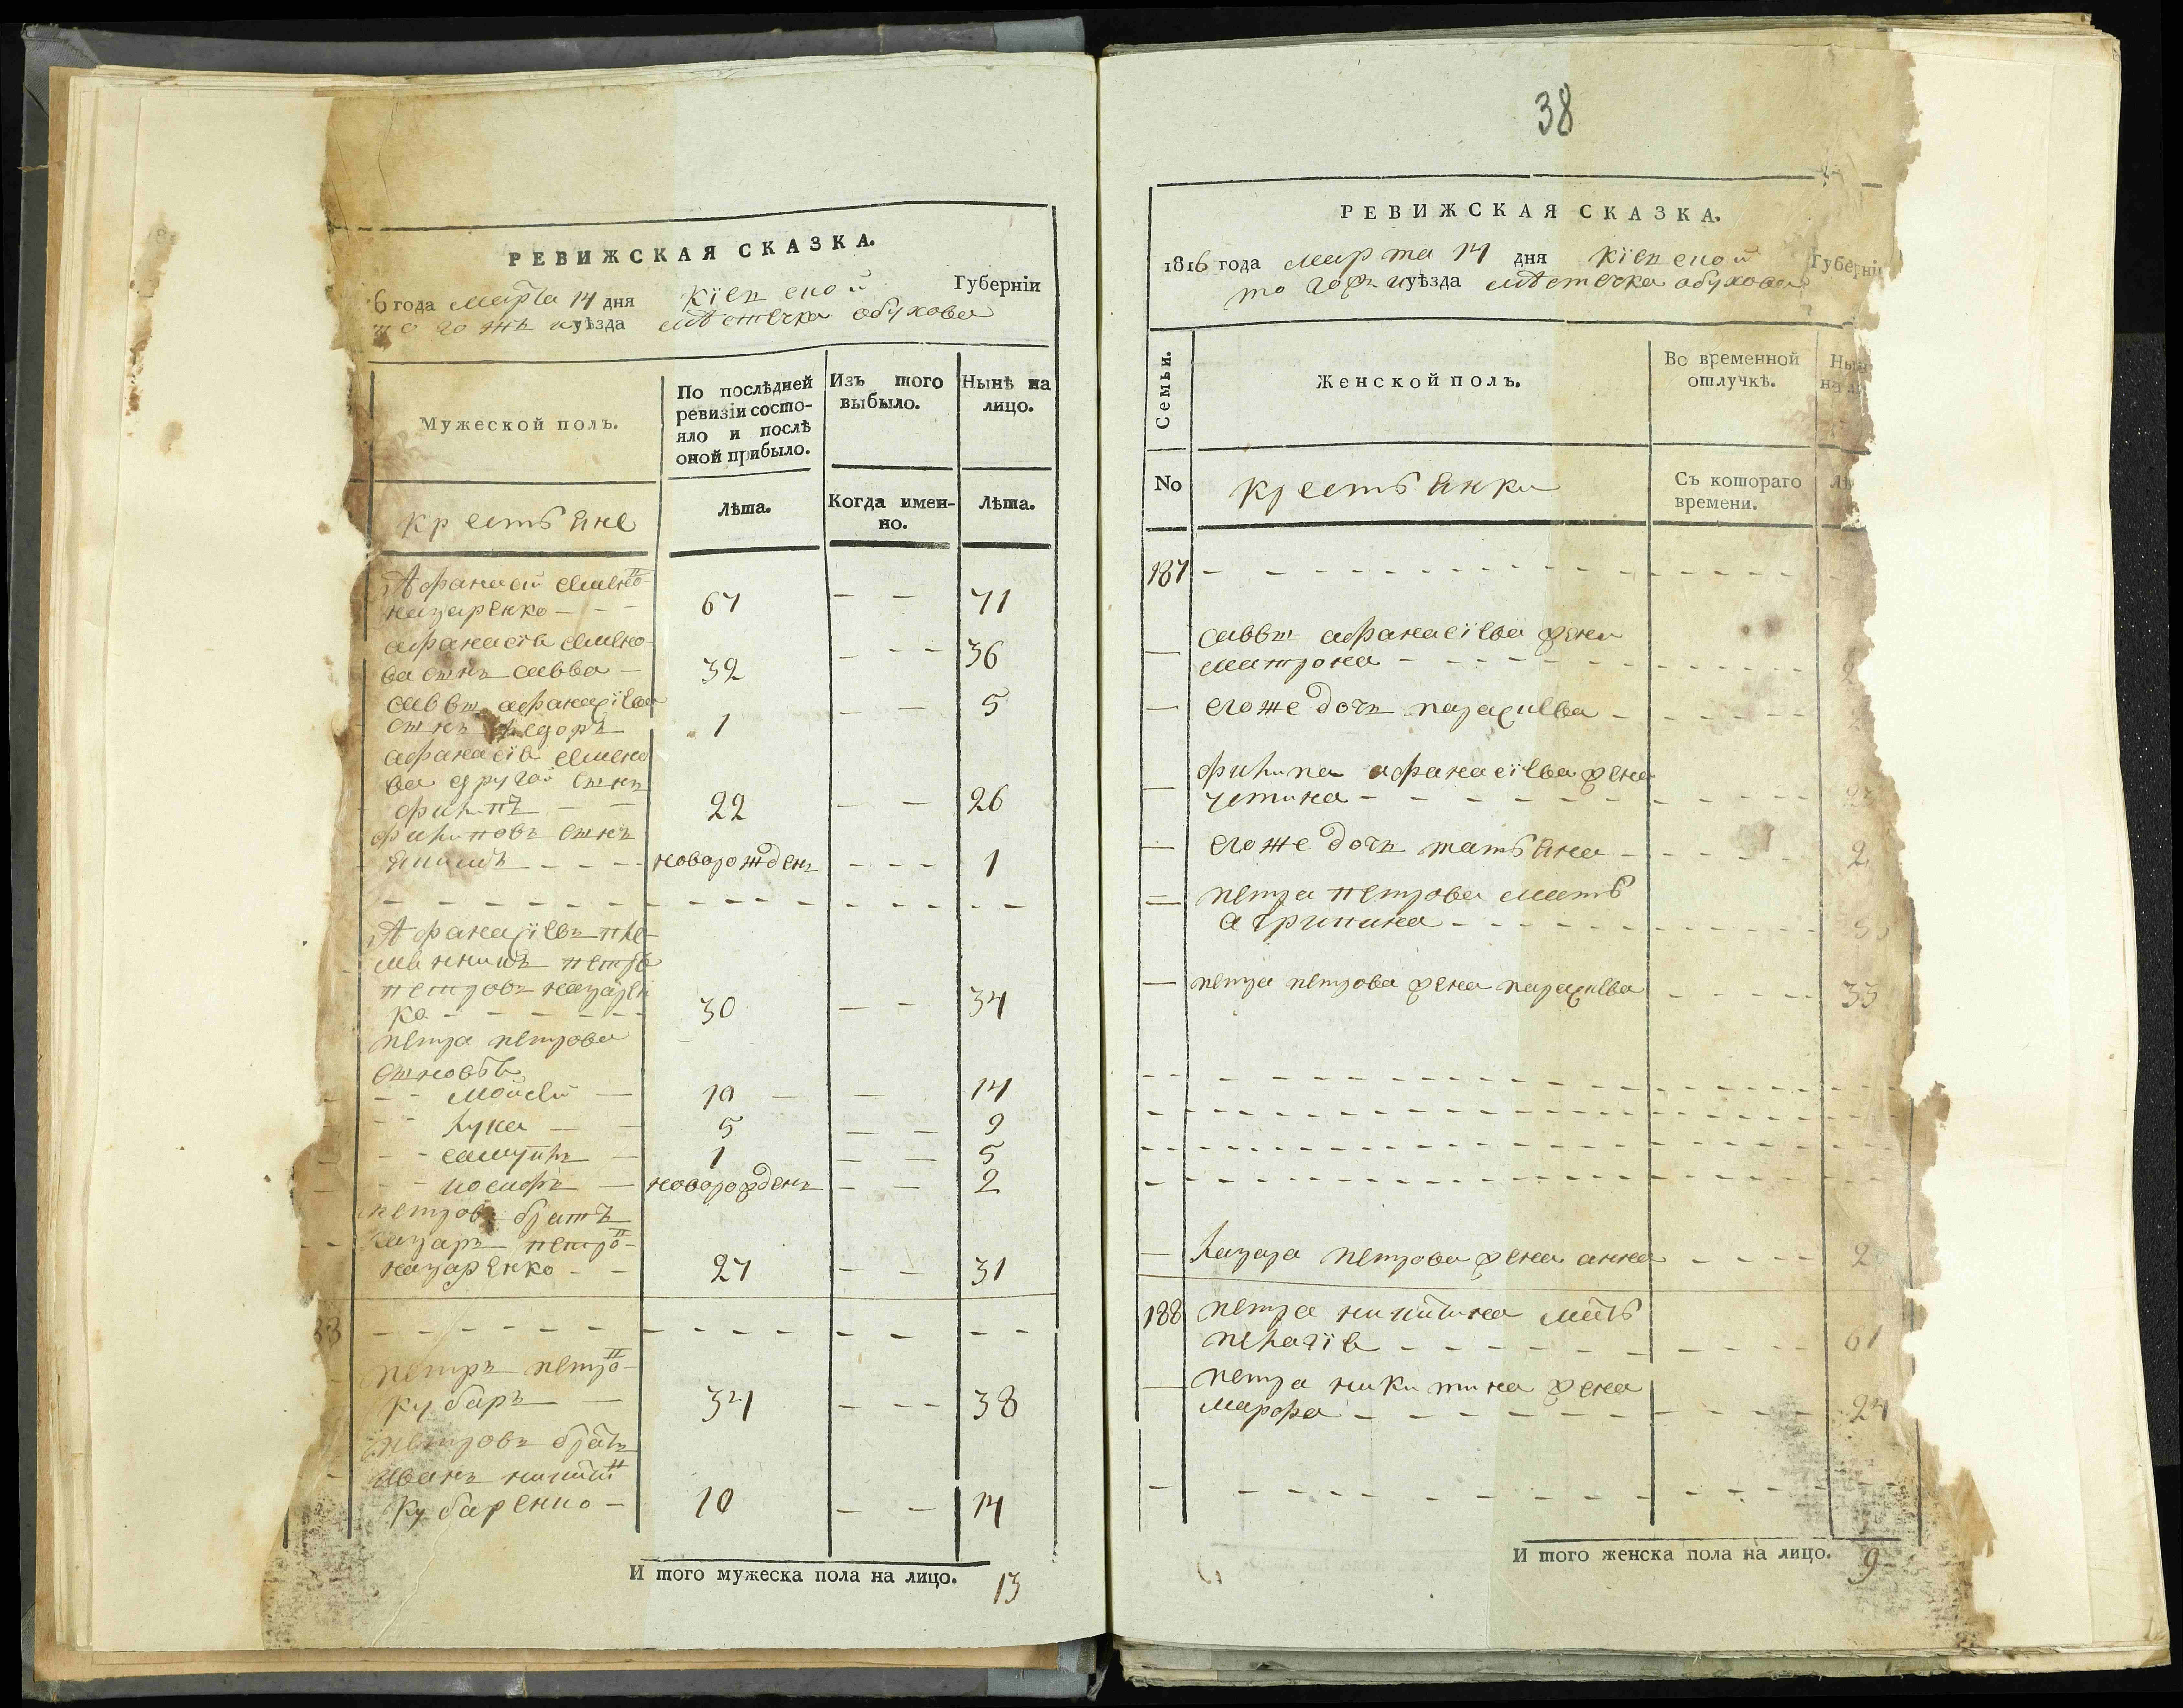 РЕВИЖСКАЯ СКАЗКА.
6 года марта 14 дня Кіевской Губерніи
того жъ уѣзда мѣстечка обухова
Мужеской полъ.
По послѣдней ревизіи состояло и послѣ оной прибыло.
Изъ того выбыло.
Нынѣ на лицо.
крестьяне
Лѣта.
Когда именно.
Лѣта.
Афанасій семено
назаренко - - - 67 — — 71
афанасія семено-
ва сынъ савва — 32 — - - 36
саввы афанасіева
сынъ федоръ 1 — — 5
афанасія семено
ва другой сынъ
филипъ — — 22 — — 26
филиповъ сынъ
якимъ - - - - новорожденъ - - - 1
Афанасіевъ пле-
мянникъ петръ
петровъ назарен
ко - - - - - - 30 — - 34
петра петрова
сыновья
- - мойсей — 10 — — 14
- - лука — — 5 — — 9
- - самуилъ — 1 — — 5
- - иосифъ — новорожденъ - — 2
петровъ братъ
лазарь петро-
назаренко - — 27 — - 31
88
петръ петро-
кубаръ — 34 - - - 38
петровъ братъ
иванъ никити
кубаренко - 10 — - 14
И того мужеска пола на лицо. 13
38
РЕВИЖСКАЯ СКАЗКА.
1816 года марта 14 дня Кіевской Губерніи
того жъ уѣзда мѣстечка обухова
Семьи.
Женской полъ.
Во временной отлучкѣ.
No
крестьянки
Съ котораго времени.
187 - - - - - -
саввы афанасіева жена
— матрона - - - - -
— егоже дочь параскева - - - -
филипа афанасіева жена
— устина - - - - -
— егоже дочь татьяна - - - - 2
= петра петрова мать
агрипина - - - - -
— петра петрова жена параскева - - - - 33
— лазара петрова жена анна - - - - 2
188 петра никитина мать
пелагія - - - - - 61
— петра никитина жена
марфа - - - - - 24
И того женска пола на лицо. 9